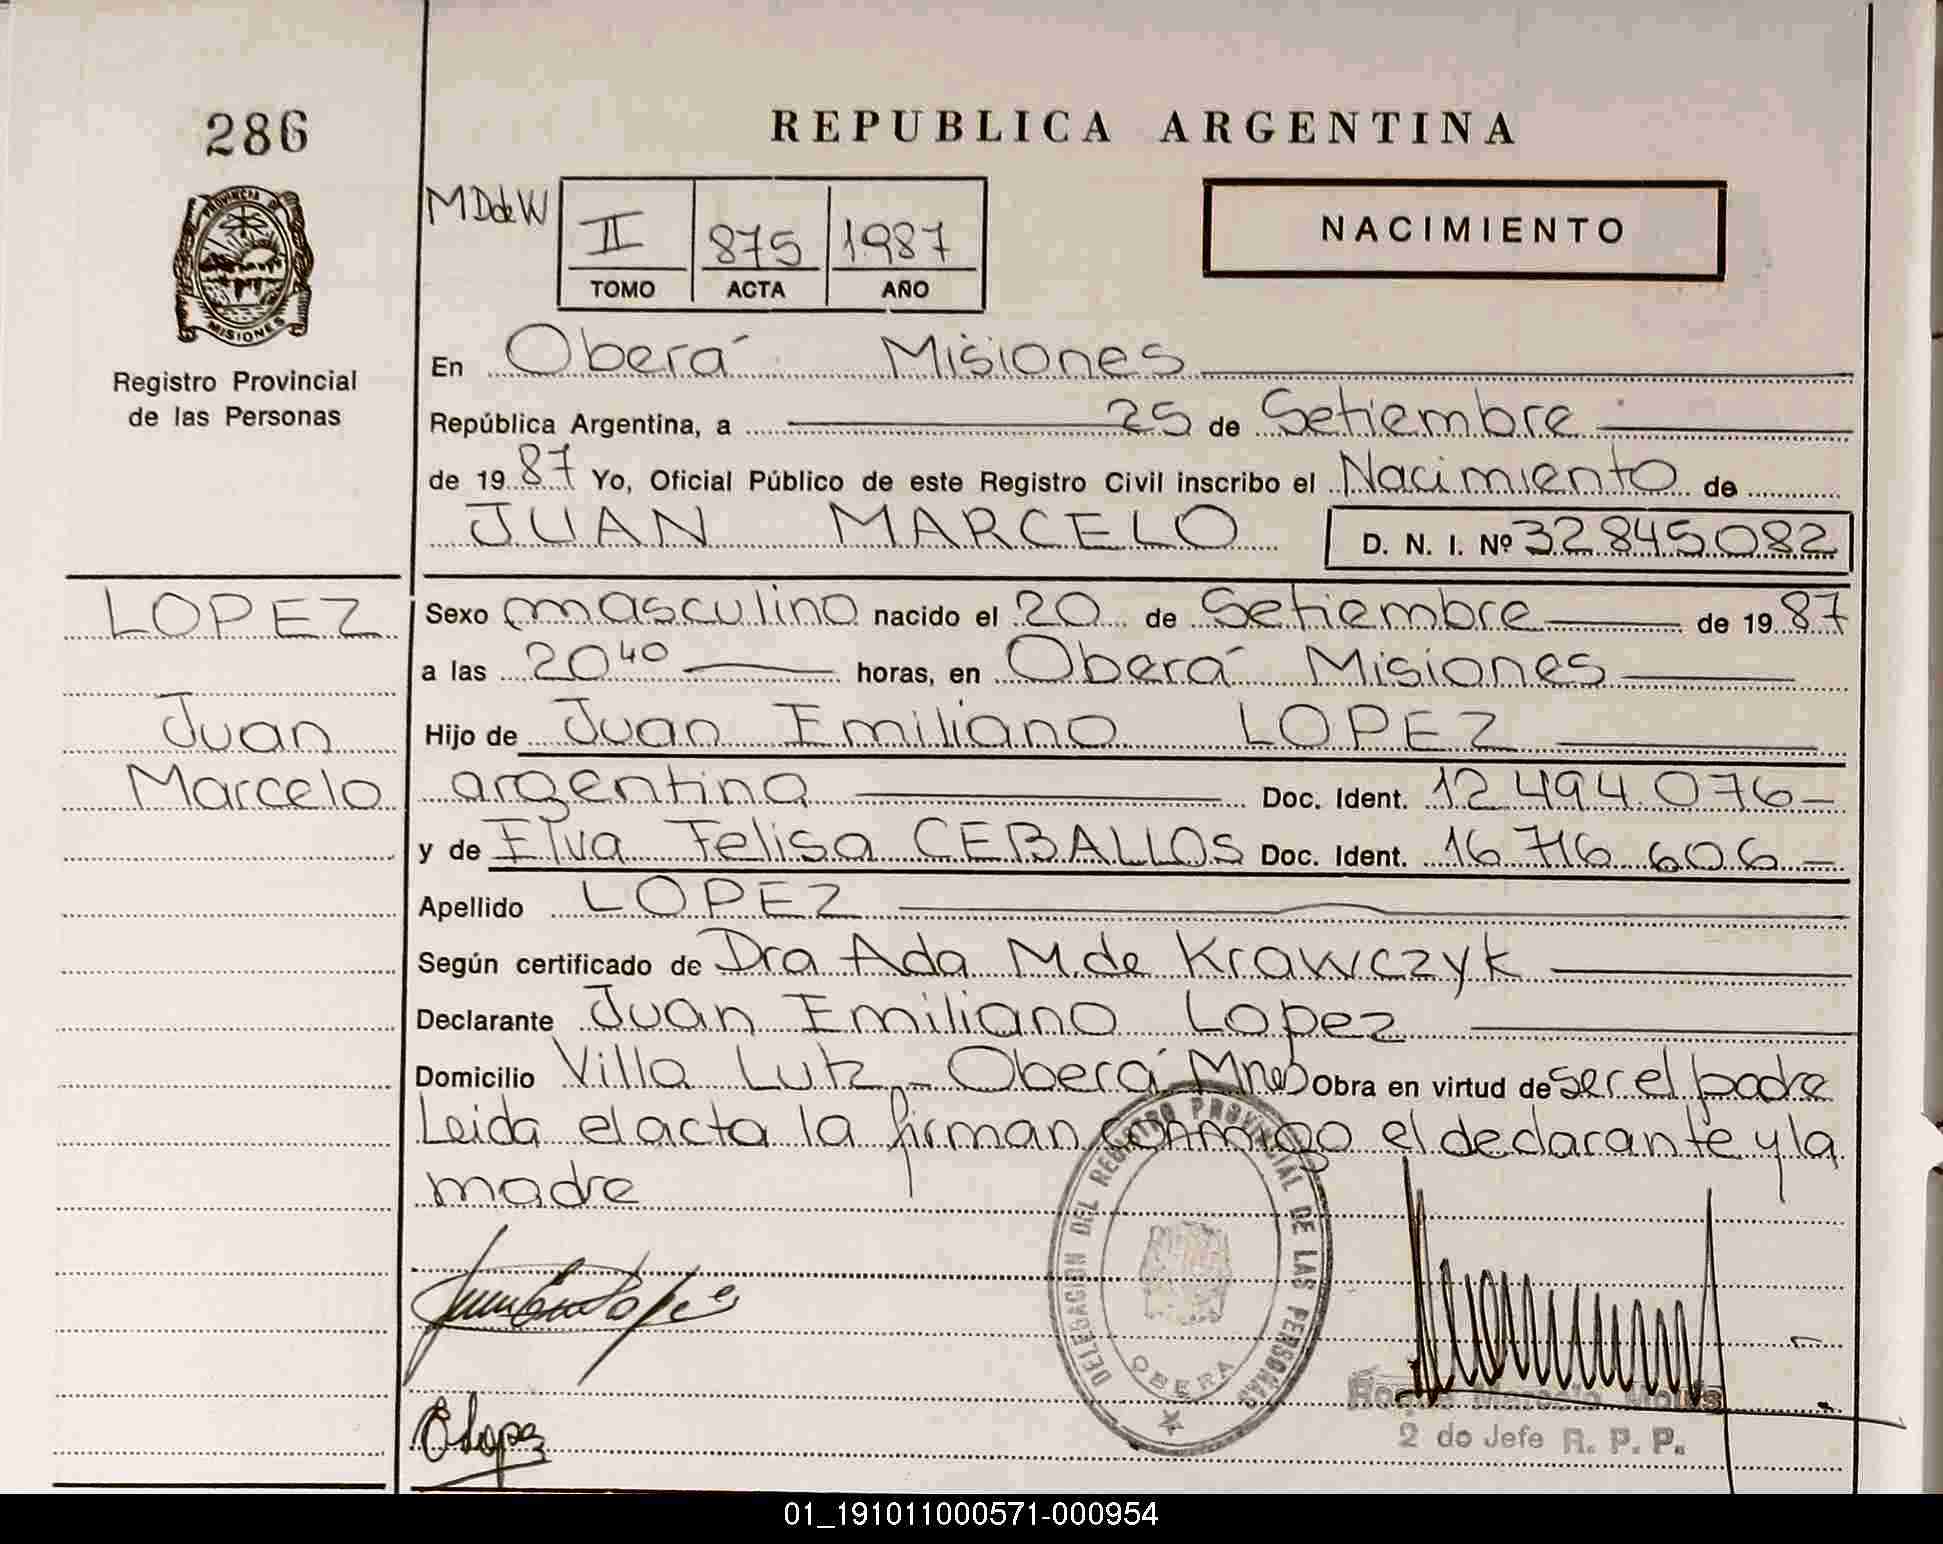 286
REPUBLICA ARGENTINA
PROVINCIA DE
MISIONES
Registro Provincial
de las Personas
MDdeW
II 875 1987
TOMO ACTA AÑO
NACIMIENTO
En Oberá Misiones
República Argentina, a 25 de Setiembre
de 1987 Yo, Oficial Público de este Registro Civil inscribo el Nacimiento de
JUAN MARCELO D. N. I. Nº 32845082
LOPEZ
Juan
Marcelo
Sexo masculino nacido el 20 de Setiembre de 1987
a las 20 40 horas, en Oberá Misiones
Hijo de Juan Emiliano LOPEZ
argentina Doc. Ident. 12 494 076
y de Elva Felisa CEBALLOS Doc. Ident. 16 716 606
Apellido LOPEZ
Según certificado de Dra Ada M. de Krawczyk
Declarante Juan Emiliano Lopez
Domicilio Villa Lutz - Oberá Mnes Obra en virtud de ser el padre
Leida el acta la firman conmigo el declarante y la
madre
DELEGACION DEL REGISTRO PROVINCIAL DE LAS PERSONAS
OBERA
Lopez
E Lopez
Roque Marcelo
2 do Jefe R. P. P.
01_191011000571-000954